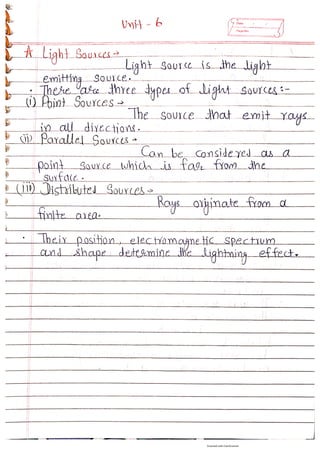 Unit - 6
☆ Light Sources →
Light source is the light
emitting source.
· There are three types of light sources:-
(i) Point Sources →
The source that emit rays
in all directions.
(ii) Parallel Sources →
Can be considered as a
point source which is far from the
surface.
(iii) Distributed Sources →
Rays originate from a
finite area.
· Their position, electromagnetic spectrum
and shape determine the lightning effect.